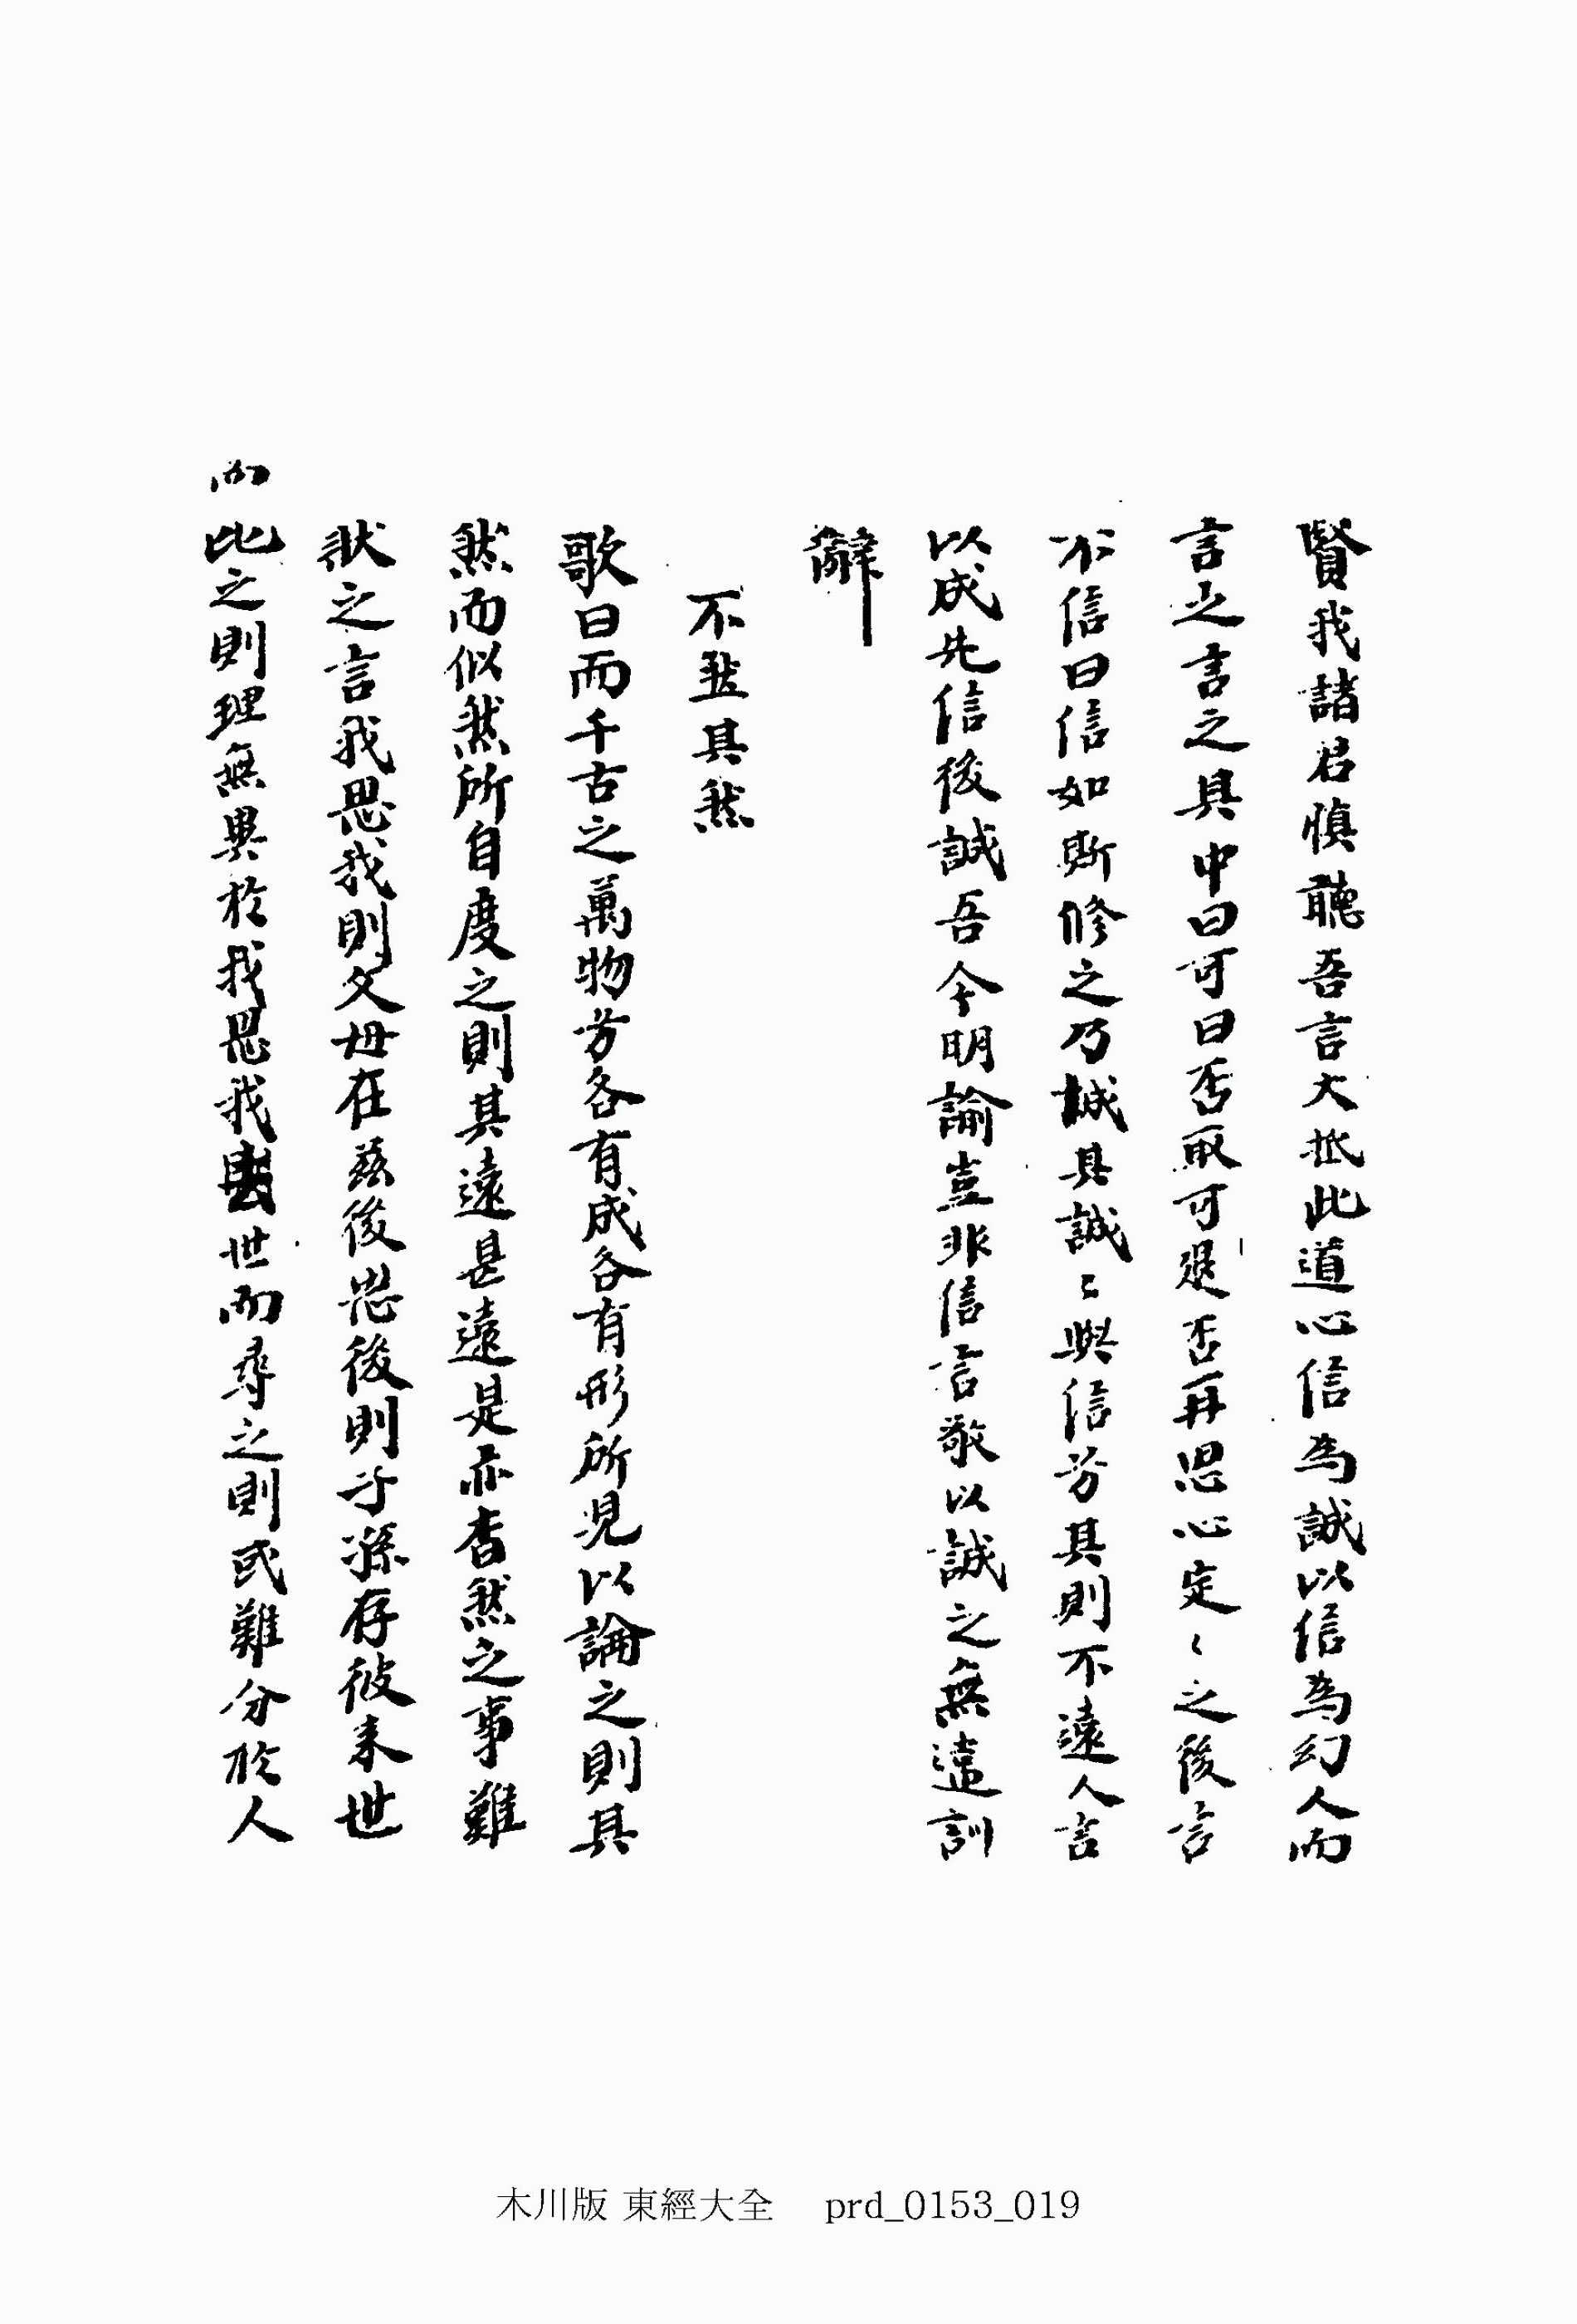 賢我諸君愼聽吾言大抵此道心信爲誠以信爲幻人而
言之言之其中曰可曰否取可退否再思心定〻之後言
不信曰信如斯修之乃誠其誠〻與信芳其則不遠人言
以成先信後誠吾今明諭豈非信言敬以誠之無違訓
辭
不然其然
歌曰而千古之萬物芳各有成各有形所見以論之則其
然而似然所自度之則其遠甚遠是亦杳然之事難
狀之言我思我則父母在玆後思後則子孫存彼來世
而比之則理無異於我思我去世而尋之則或難分於人
木川版 東經大全 prd_0153_019